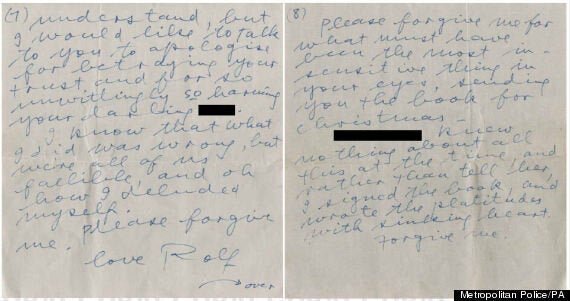 (7)
understand, but
I would like to talk
to you to apologise
for betraying your
trust and for so
unwittingly so harming
your darling
I know that what
I did was wrong, but
we're all of us
fallible, and oh
how I deluded
myself.
Please forgive
me.
love Rolf
→ over
(8)
Please forgive me for
what must have
been the most in-
sensitive thing in
your eyes, sending
you the book for
Christmas —
knew
nothing about all
this at the time, and
rather than tell her,
I signed the book, and
wrote the platitudes
with sinking heart.
Forgive me.
Metropolitan Police/PA